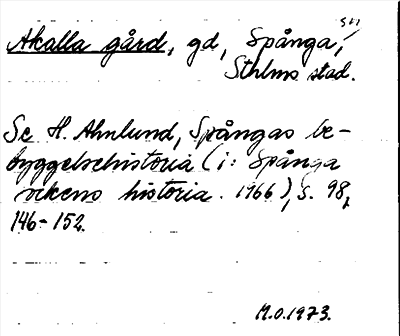 Akalla gård, gd, Spånga, sn
Sthlms stad.
Se H. Ahnlund, Spångas be-
byggelsehistoria (i: Spånga
sockens historia. 1966), s. 98,
146-152.
M.O.1973.